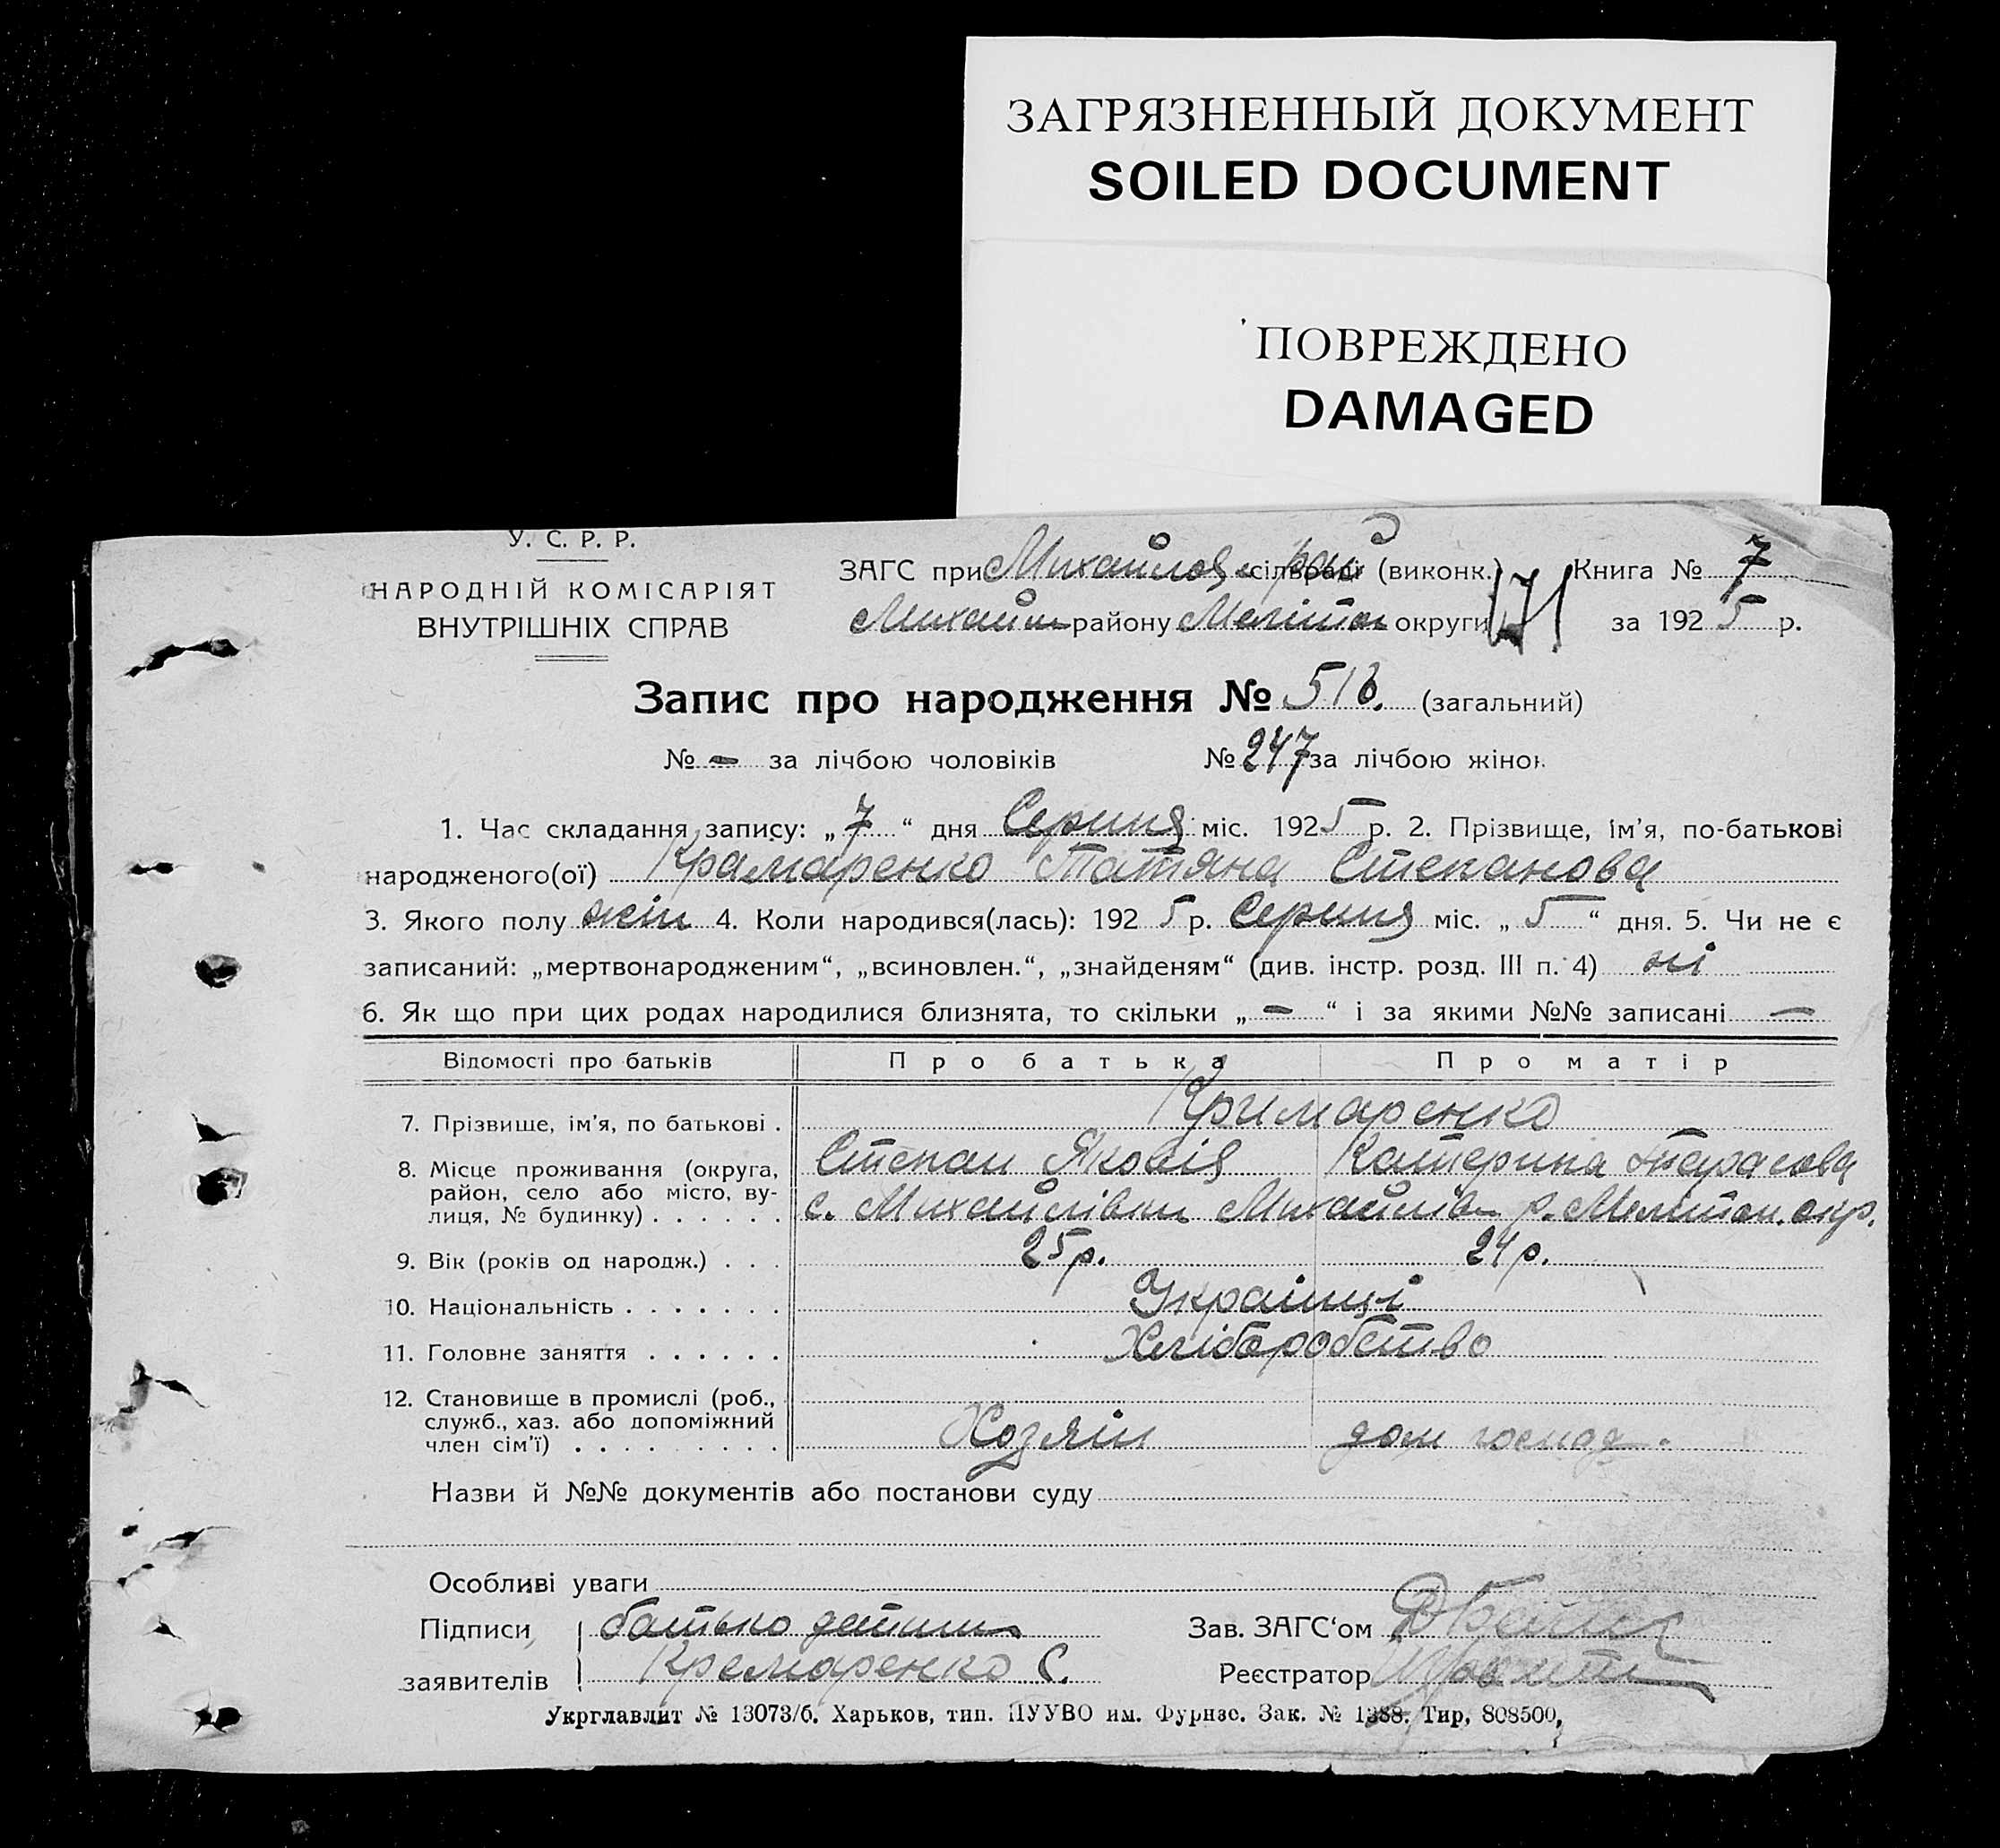 ЗАГРЯЗНЕННЫЙ ДОКУМЕНТ
SOILED DOCUMENT
ПОВРЕЖДЕНО
DAMAGED
У. С. Р. Р.
НАРОДНІЙ КОМІСАРІЯТ
ВНУТРІШНІХ СПРАВ
ЗАГС при Михайлов сільраді (виконк.) Книга № 7
Михайл району Меліт округи 171 за 1925 р.
Запис про народження № 516. (загальний)
№ - за лічбою чоловіків № 247 за лічбою жінок
1. Час складання запису: „7“ дня Серпня міс. 1925 р. 2. Прізвище, ім'я, по-батькові
народженого(ої) Крамаренко Татяна Степанова
3. Якого полу жін 4. Коли народився(лась): 1925 р. Серпня міс. „5“ дня. 5. Чи не є
записаний: „мертвонародженим“, „всиновлен.“, „знайденям“ (див. інстр. розд. III п. 4) ні
6. Як що при цих родах народилися близнята, то скільки „-“ і за якими №№ записані —
Відомості про батьків Про батька Про матір
7. Прізвище, ім'я, по батькові . Крамаренко
8. Місце проживання (округа, Степан Яковів Катерина Тарасова
район, село або місто, ву-
лиця, № будинку) . . . . . . с. Михайлівки Михайлів р. Мелітоп. окр.
9. Вік (років од народж.) . . . 25 р. 24 р.
10. Національність . . . . . . . Українці
11. Головне заняття . . . . . . Хліборобство
12. Становище в промислі (роб.,
служб., хаз. або допоміжний
член сім'ї) . . . . . . . . . Хозяїн дом господ.
Назви й №№ документів або постанови суду
Особливі уваги
Підписи батько детини Зав. ЗАГС‘ом
заявителів Крамаренко С. Реєстратор
Укрглавлит № 13073/б. Харьков, тип. ПУУВО им. Фрунзе. Зак. № 1388. Тир, 808500,